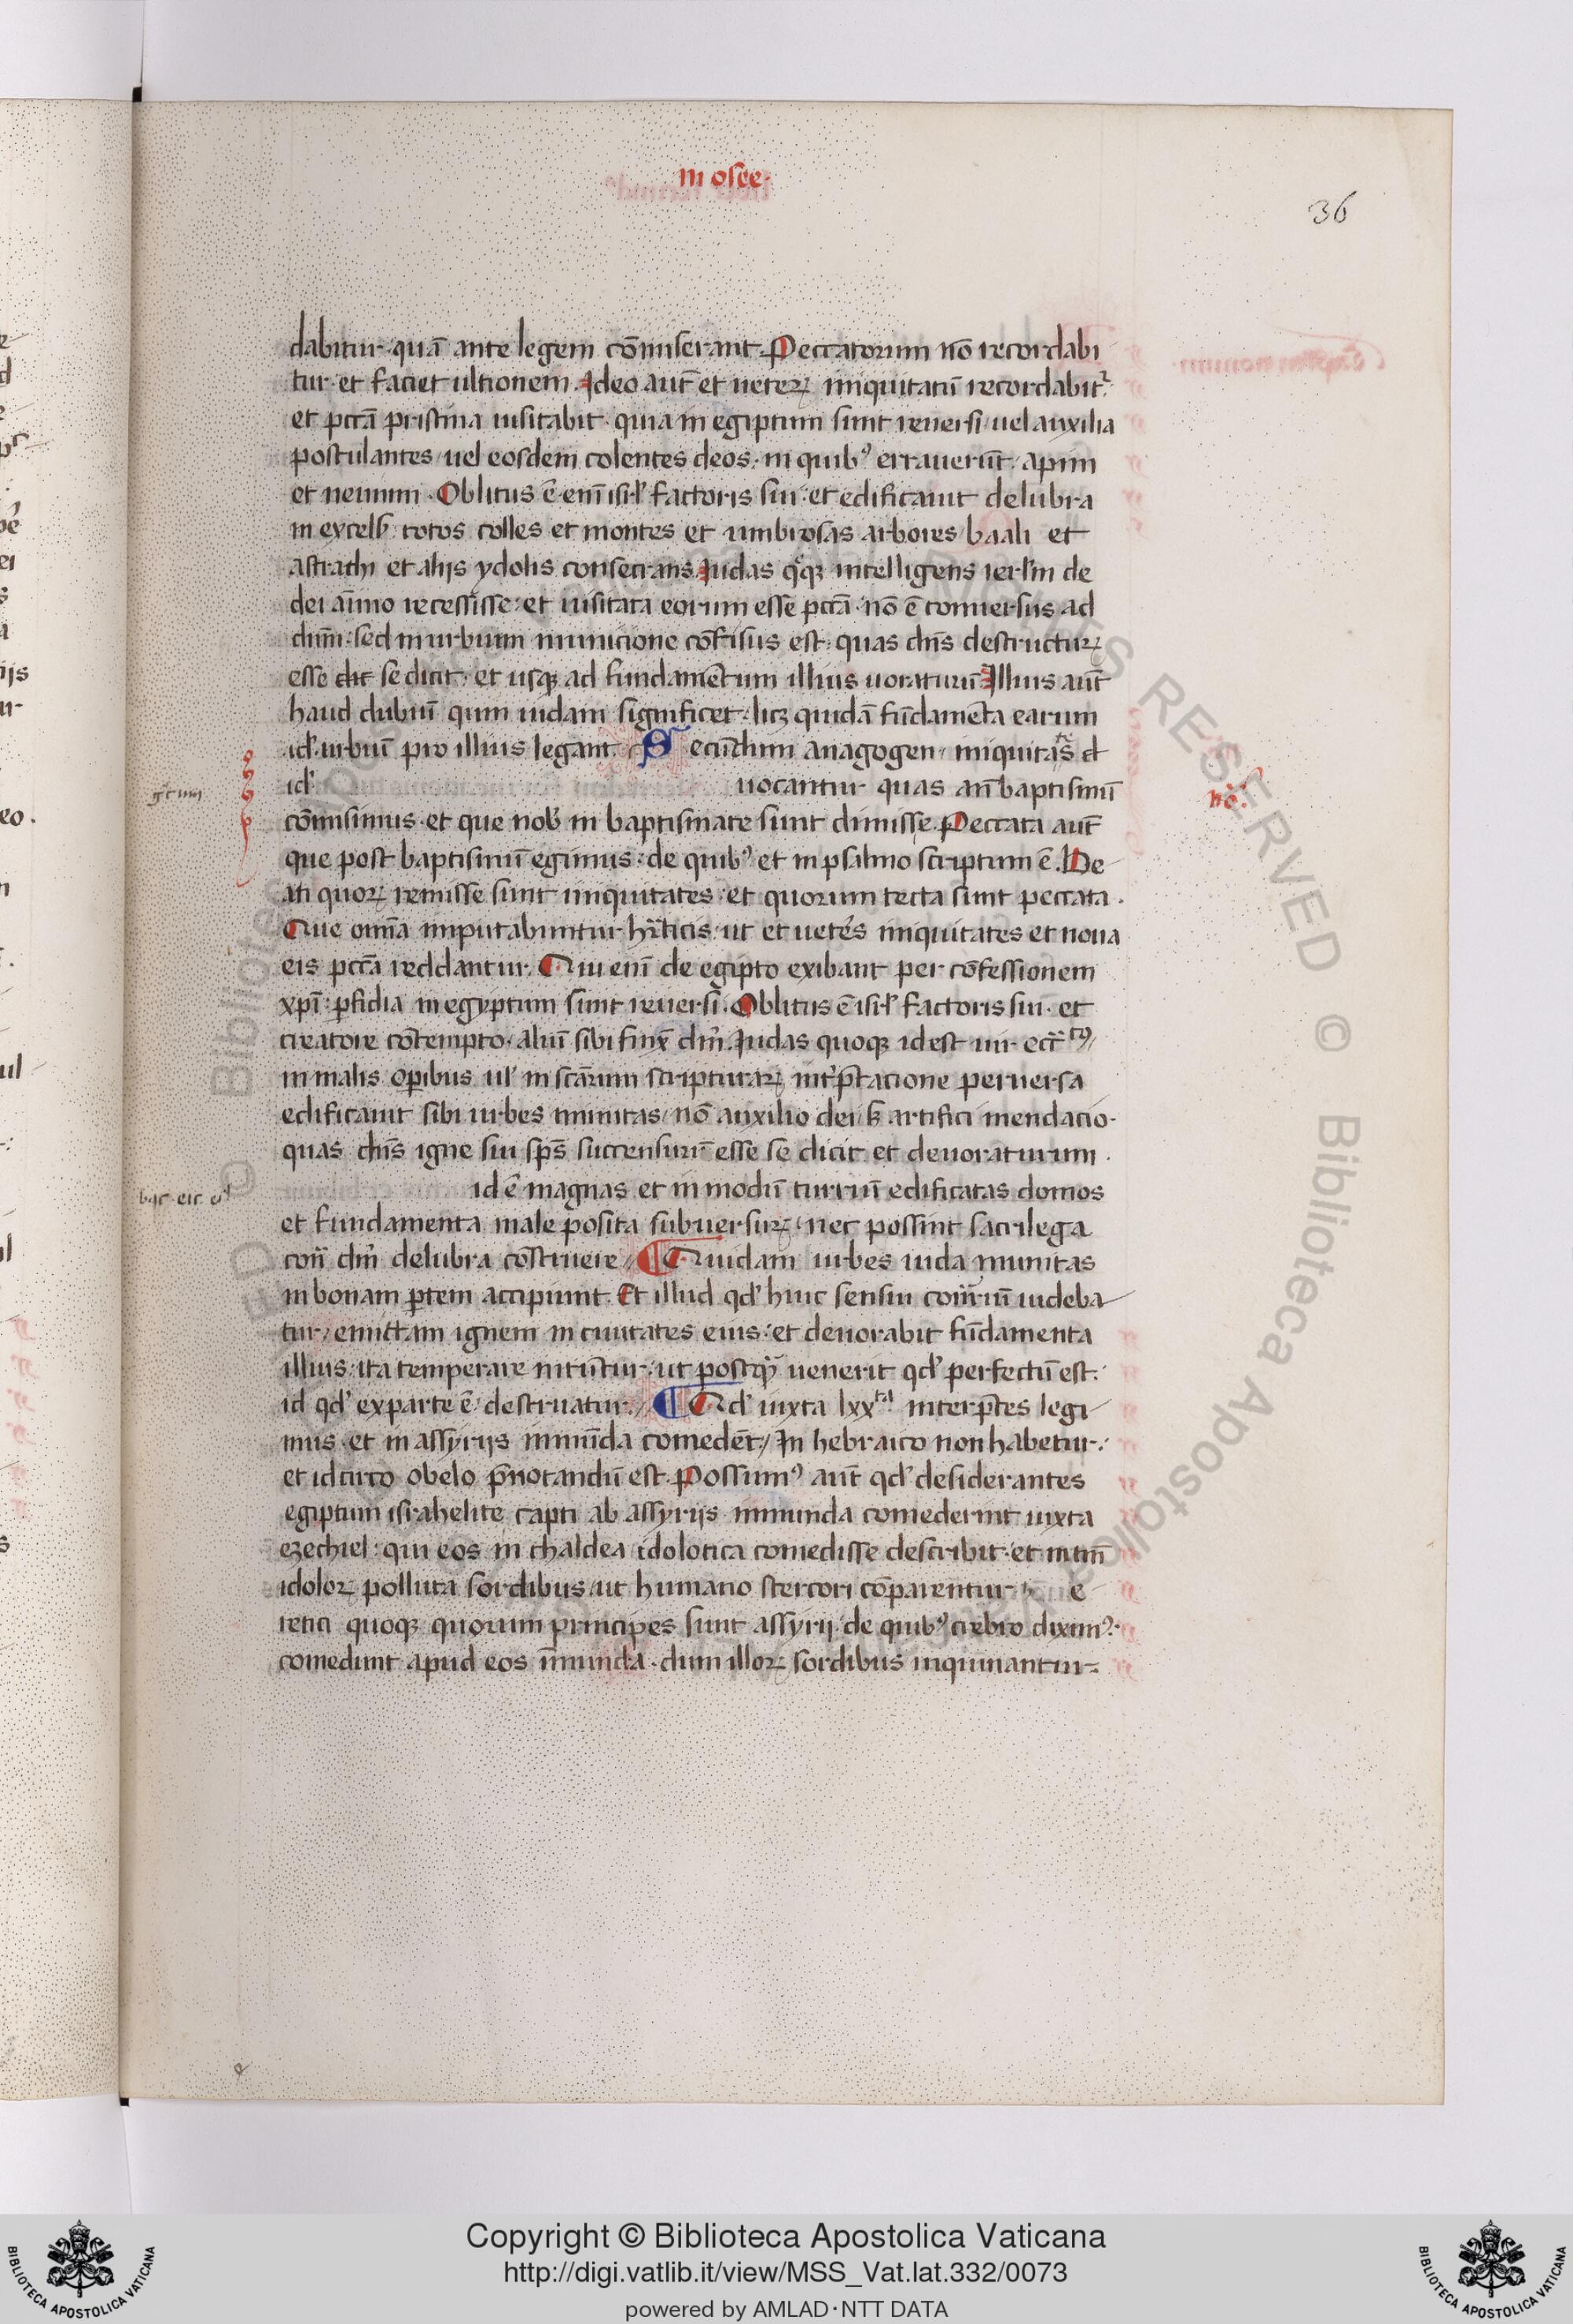 in osee·
36
dabitur quā ante legem cōmiserant. Peccatorum nō recordabi
tur et faciet ultionem. Ideo aut̄ et ueteꝝ iniquitatū recordabit᷑
et pctā̄ pristina uisitabit· quia in egiptum sunt reuersi uel auxilia
postulantes uel eosdem colentes deos· in quibꝰ errauerūt· apim
et neuum· Oblitus ē enī isrł factoris sui· et edificauit delubra
in excelsꝭ totos colles et montes et umbrosas arbores baali et
astrathi et alijs ydolis consecrans Judas qͦqꝫ intelligens ierłm de
dei aīmo recessisse· et uisitata eorum esse pctā· nō ē conuersus ad
dnm̄· sed in urbium municione cōfisus est· quas dn̄s destructuꝝ
esse dit se dicit· et usqꝫ ad fundamētum illius uoraturū Illius aut̄
haud dubiū quin iudam significet· licꝫ quidā fūdamēta earum
id· urbiū pro illius legant· Secūdum anagogen· iniquitatꝭs d
id· uocantur quas an̄ baptismū
gͨcum
nō:
cōmisimus· et que nobꝭ in baptismate sunt dimisse· Peccata aut̄
que post baptismū egimus· de quibꝰ et in psalmo scriptum ē. Be
ati quoꝝ remisse sunt iniquitates· et quorum tecta sunt peccata·
Que omīa imputabuntur hr̄eticis· ut et uetēs iniquitates et noua
eis pctā reddantur. Qui enī de egipto exibant per cōfessionem
xpī· pfidia in egyptum sunt reuersi· Oblitus ē isrł factoris sui· et
creatore cōtempto· aliū sibi finx̄ dm̄. Judas quoqꝫ id est uir ecc̄ticꝰ
in malis opibus ul' in scārum scripturaꝝ int'p̄tacione peruersa
edificauit sibi urbes munitas nō auxilio dei sꝫ artifici mendacio·
quas dn̄s igne sui sp̄s succensurū esse se dicit et deuoraturum·
id ē magnas et in modū turriū edificatas domos
bac· eic·
et fundamenta male posita subuersuꝝ· nec possint sacrilega
con̄ dm̄ delubra cōstruere ¶ Quidam urbes iuda munitas
in bonam ptem accipiunt. Et illud qd' huic sensui cont̄riū uideba
tur, emittam ignem in ciuitates eius· et deuorabit fūdamenta
illius· ita temperare nitūtur· ut postqͣ uenerit qd' perfectū est:
id qd' ex parte ē destruatur· ¶ Qd' iuxta lxxͭͣ interp̄tes legi
mus· et in assyrijs inmūda comedēt, In hebraico non habetur:
et idcirco obelo p̄notandū est· Possumꝰ aut̄ qd' desiderantes
egiptum israhelite capti ab assyrijs inmunda comederint iuxta
ezechiel· qui eos in chaldea idolotica comedisse describit· et intm̄
idoloꝝ polluta sordibus ut humano stercori cōparentur h e
retici quoqꝫ quorum principes sunt assyrij· de quibꝰ crebro diximꝰ·
comedunt apud eos īmunda· dum illoꝝ sordibus inquinantur
Copyright © Biblioteca Apostolica Vaticana
http://digi.vatlib.it/view/MSS_Vat.lat.332/0073
powered by AMLAD·NTT DATA
BIBLIOTECA APOSTOLICA VATICANA
BIBLIOTECA APOSTOLICA VATICANA